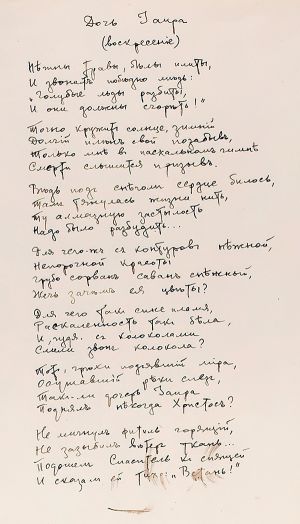 Дочь Іаира
(воскресеніе)
Нѣжны травы, бѣлы плиты,
И звонитъ побѣдно мѣдь:
"Голубые льды разбиты,
И они должны сгорѣть!"
Точно кружитъ солнце, зимній
Долгій плѣнъ свой позабывъ,
Только мнѣ въ пасхальномъ гимнѣ
Смерти слышится призывъ.
Вѣдь подъ снѣгомъ сердце билось,
Тамъ тянулась жизни нить,
Ту алмазную застылость
Надо было разбудить...
Для чего-жъ съ контуровъ нѣжной,
Непорочной красоты
Грубо сорванъ саванъ снѣжный,
Жечь зачѣмъ ея цвѣты?
Для чего такъ сине пламя,
Раскаленность такъ бѣла,
И, гудя, съ колоколами
Слили звонъ колокола?
Тотъ, грѣхи подъявшій міра,
Осушавшій рѣки слезъ,
Такъ-ли дочерь Іаира
Поднялъ нѣкогда Христосъ?
Не мигнулъ фитиль горящій,
Не зазыбилъ вѣтеръ ткань...
Подошелъ Спаситель къ спящей
И сказалъ ей тихо: "Встань!"